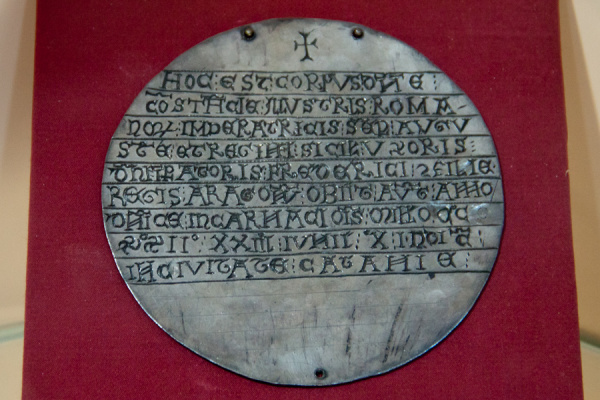 ✝
HOC : EST CORPVS DNE :
COSTACIE : ILLVSTRIS : ROMA
NOR : IMPERATRICIS : SEP : AVGV
STE : ET REGINE : SICILI : VXORIS :
DNI IPRATORIS : FREDERICI : 7 FILIE
REGIS : ARAGON OBIIT AVT ANNO
DNICE : INCARNACIOIS
XXIII IVNII : X : INDI
IN CIVITATE : CATANIE :